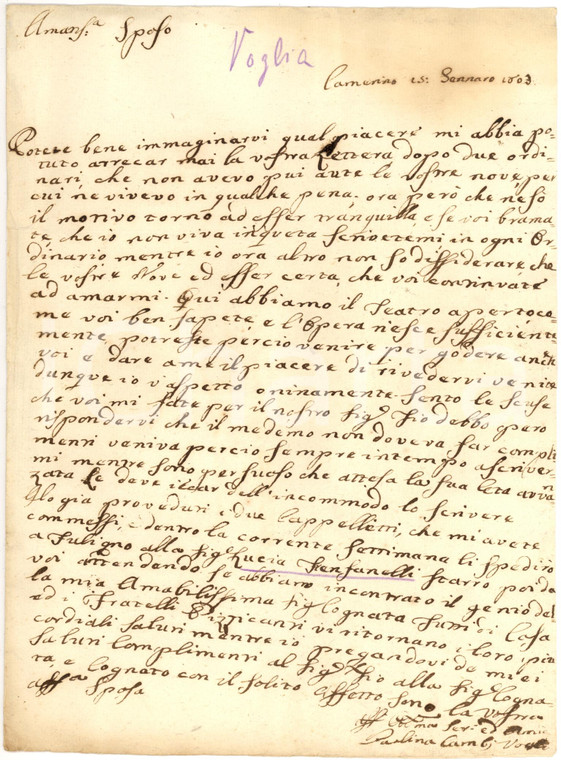 Amans.ma Sposo
Voglia
Camerino 15: Gennaro 1803
Potete bene immaginarvi qual piacere mi abbia po-
tuto arrecar mai la vostra Lettera dopo due ordi-
nari, che non avevo piu aute le vostre nove, per
cui ne vivevo in qualche pena; ora però che ne so
il motivo torno ad esser tranquilla, e se voi brama-
te, che io non viva inqueta scrivetemi in ogni Or-
dinario mentre io ora altro non so disiderare che
le vostre Nove ed esser certa, che voi continuate
ad amarmi. Qui abbiamo il Teatro aperto co-
me voi ben sapete, e l'Opera riesce sufficiente
mente, potreste perciò venire per godere anche
voi e dare a me il piacere di rivedervi venite
dunque io v'aspetto oninamente. Sento le scuse
che voi mi fate per il nostro Sig.e Zio debbo pero
rispondervi che il medemo non doveva far compli
menti veniva perciò sempre in tempo a scriver
mi mentre sono persuaso che attesa la sua Età avva
zata le deve il dell'incommodo lo scrivere
Logia proveduti i due Cappelletti, che mi avete
commessi, e dentro la corrente settimana li spedirò
a Fuligno alla Sig.e Lucia starrò poi da
voi attendendo se abbiano incontrato il genio del
la mia Amabilissima Sig. Cognata Tutti di Casa
ed i Fratelli vi ritornano i loro più
cordiali saluti mentre io pregandovi de miei
saluti complimenti al Sig.e Zio alla Sig.e Cogna
ta, e Cognato con il solito affetto sono la vostra
Sposa
Aff. Ser: ed
Paolina